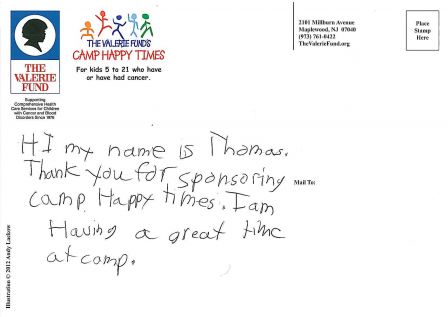 THE
VALERIE
FUND
Supporting
Comprehensive Health
Care Services for Children
with Cancer and Blood
Disorders Since 1976
THE VALERIE FUND'S
CAMP HAPPY TIMES
For kids 5 to 21 who have
or have had cancer.
2101 Millburn Avenue
Maplewood, NJ 07040
(973) 761-0422
TheValerieFund.org
Place
Stamp
Here
HI my name is Thomas.
Thank you for sponsoring
camp Happy times. I am
Having a great time
at camp.
Mail To:
Illustration © 2012 Andy Lackow